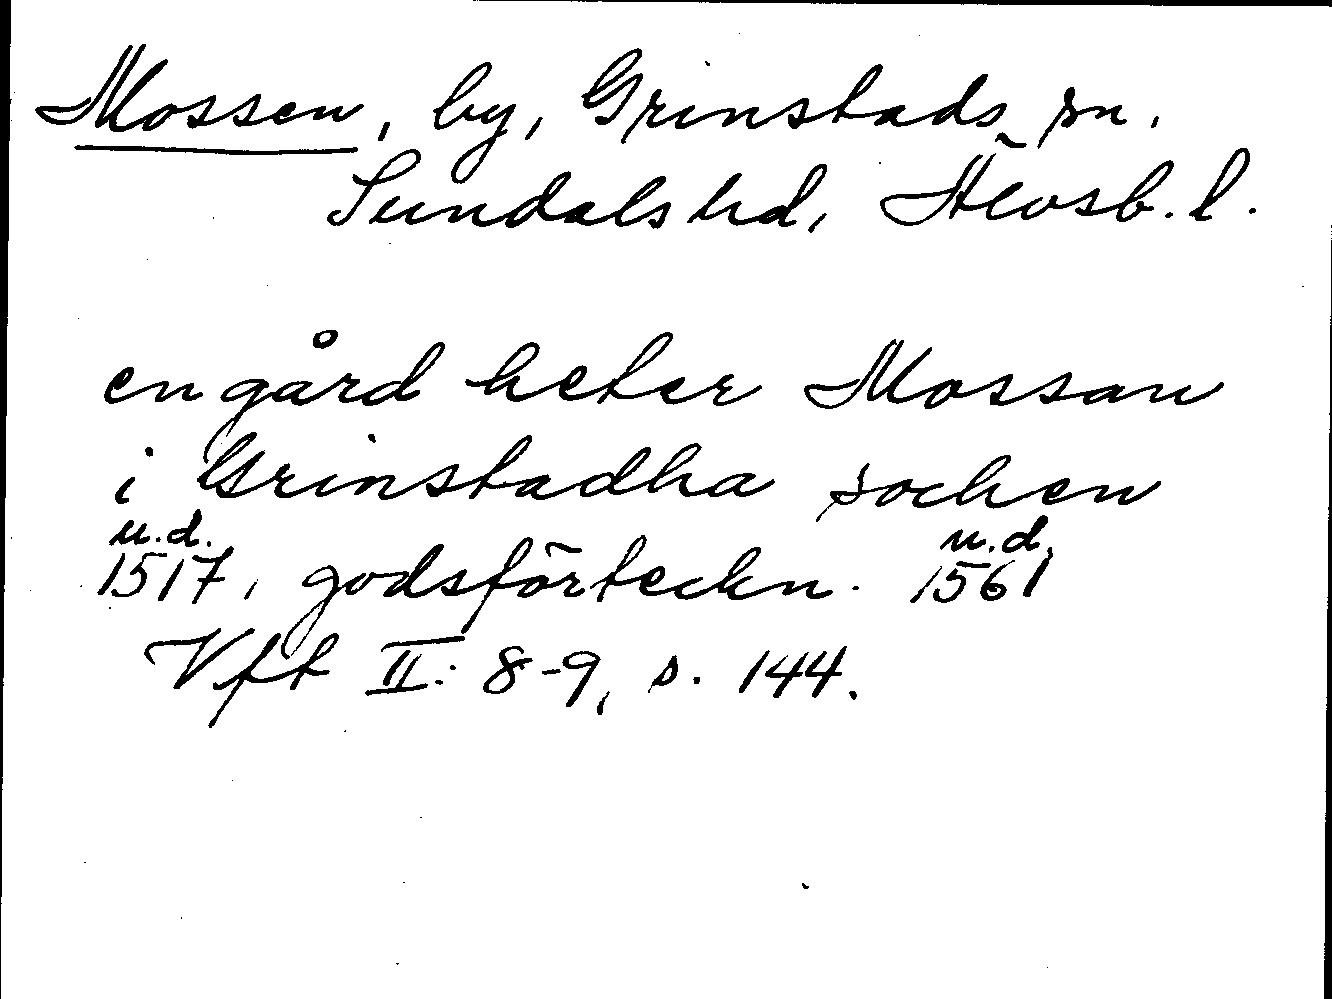 Mossen, by, Grinstads sn.
Sundals hd, Älvsb. l.
en gård heter Mossan
i Grinstadha sochen
u.d. u.d.
1517, godsförteckn. 1561
Vft II: 8-9, s. 144.